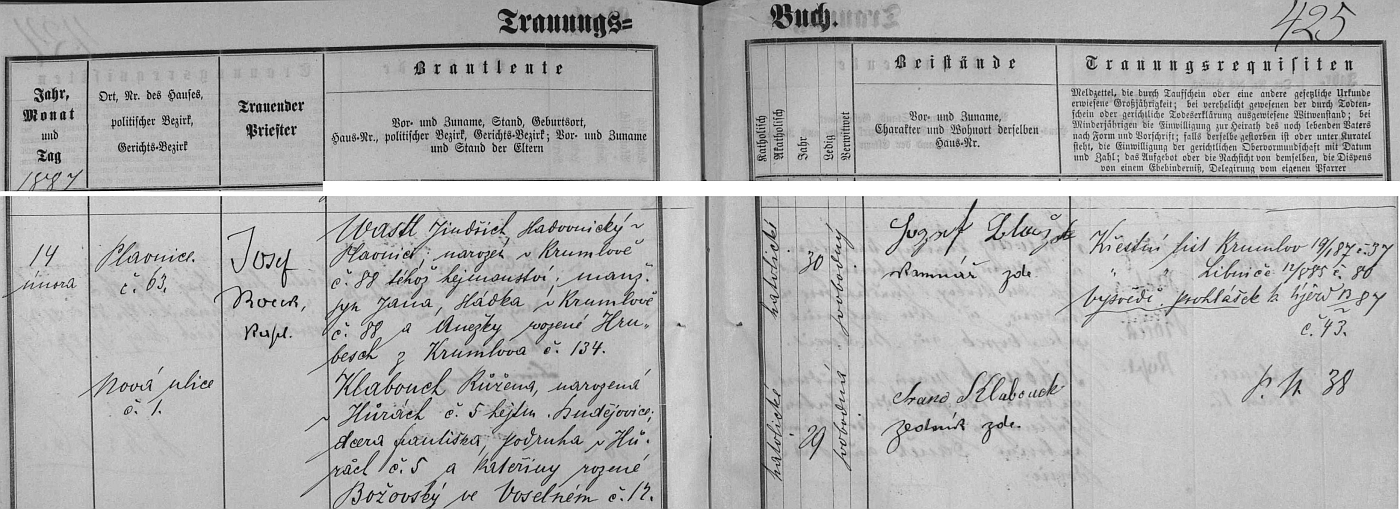 Trauungs=
Buch.
425
Jahr,
Monat
und
Tag
1887
Ort, Nr. des Hauses,
politischer Bezirk,
Gerichts-Bezirk
Trauender
Priester
Brautleute
Vor- und Zuname, Stand, Geburtsort,
Haus-Nr., politischer Bezirk, Gerichts-Bezirk; Vor- und Zuname
und Stand der Eltern
Katholisch
Akatholisch
Jahr
Ledig
Verwitwet
Beistände
Vor- und Zuname,
Charakter und Wohnort derselben
Haus-Nr.
Trauungsrequisiten
Meldzettel, die durch Taufschein oder eine andere gesetzliche Urkunde
erwiesene Großjährigkeit; bei verehelicht gewesenen der durch Todten-
schein oder gerichtliche Todeserklärung ausgewiesene Witwenstand; bei
Minderjährigen die Einwilligung zur Heirath des noch lebenden Vaters
nach Form und Vorschrift; falls derselbe gestorben ist oder unter Kuratel
steht, die Einwilligung der gerichtlichen Obervormundschaft mit Datum
und Zahl; das Aufgebot oder die Nachsicht von demselben, die Dispens
von einem Ehehinderniß, Delegirung vom eigenen Pfarrer
14
února
Plavnice
č. 63.
Josef
Kapl.
Wastl Jindřich,
Plavnici: narozen v Krumlově
č. 88 téhož hejtmanství; manž.
syn Jana, v Krumlově
č. 88 a Anežky rozené Hru-
besch z Krumlova č. 134.
katolický
30
svobodný
Josef
zde.
Křestní list Krumlov 19/1 87 č. 37
" " Libniče č. 80
87
č. 43.
Nová ulice
č. 1.
Klabouch Růžena, narozená
v Hůrách č. 5 hejtm. Budějovice;
dcera podruha v Hů-
rách č. 5 a Kateřiny rozené
Božovský ve Voselném č. 12.
katolická
29
svobodná
Franc Klabouch
zedník zde.
38